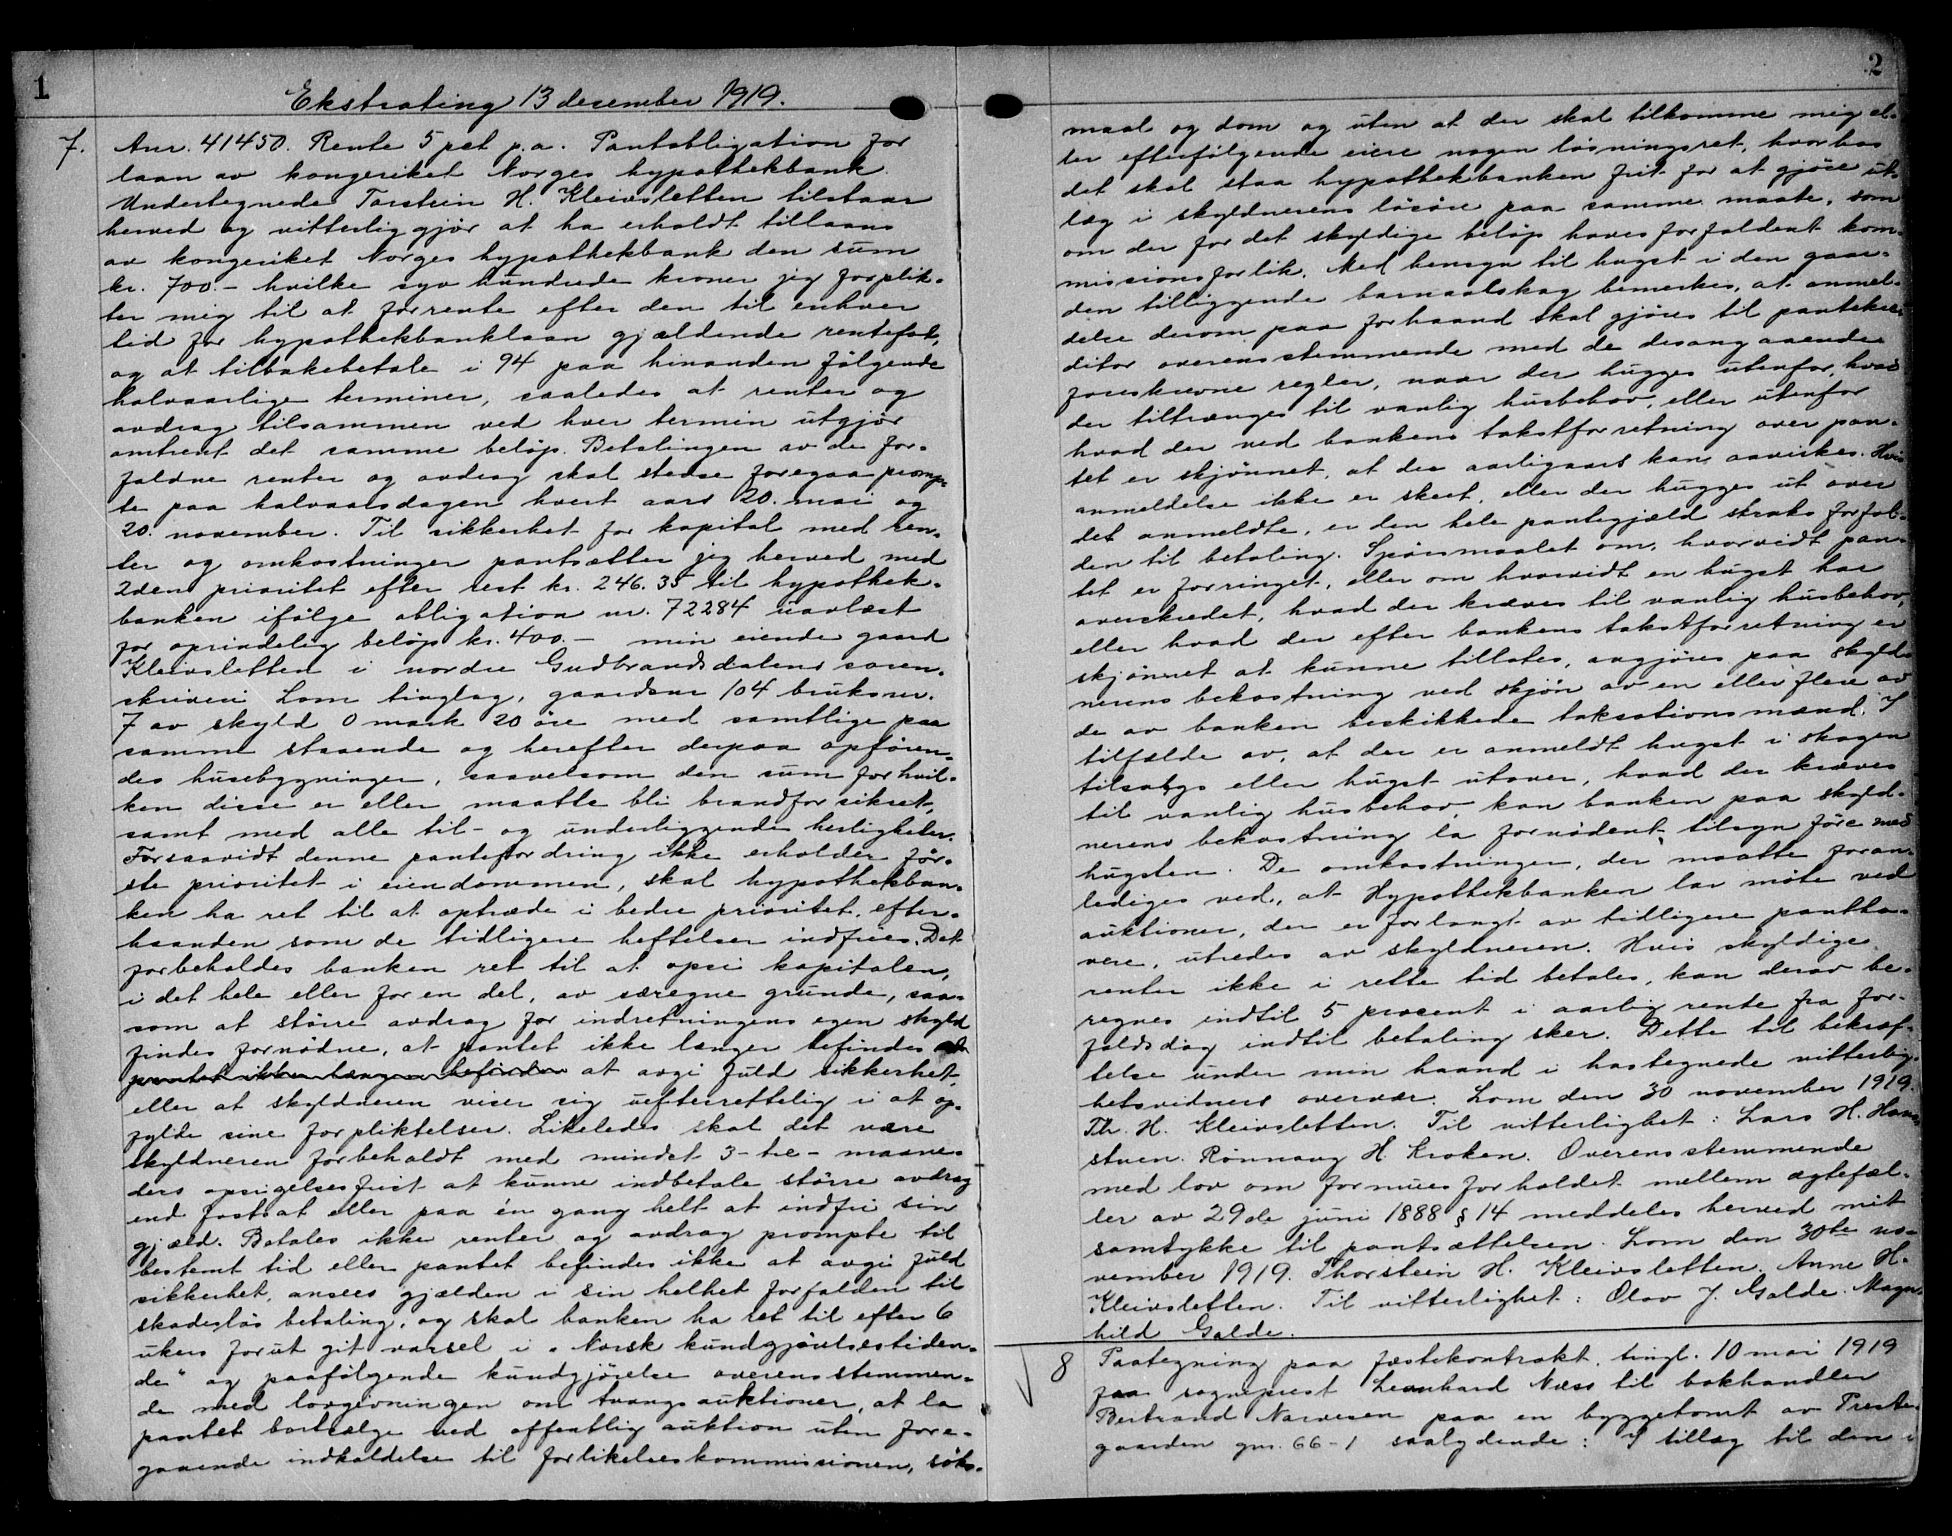 1
Ekstrating 13 desember 1919.
7.
Anr. 41450. Rente 5 pct p.a. Pantobligation for
laan av kongeriket Norges hypothekbank.
Undertegnede Torstein H. Kleivsletten tilstaar
herved og vitterliggjør at ha erholdt tillaans
av kongeriket Norges hypothekbank den sum
kr. 700.- hvilke syv hundrede kroner jeg forplik-
ter mig til at forrente efter den til enhver
tid for hypothekbanklaan gjældende rentefot,
og at tilbakebetale i 94 paa hinanden følgende
halvaarlige terminer, saaledes at renter og
avdrag tilsammen ved hver termin utgjør
omtrent det samme beløp. Betalingen av de for-
faldne renter og avdrag skal stedse foregaa promp-
te paa halvaarsdagen hvert aars 20. mai og
20. november. Til sikkerhet for kapital med ren-
ter og omkostninger pantsætter jeg herved med
2den prioritet efter rest kr. 246.35 til hypothek-
banken ifølge obligation nr. 72284 uavlæst
for oprindelig beløp kr. 400.- min eiende gaard
Kleivsletten i nordre Gudbrandsdalens soren-
skriveri Lom tinglag, gaardsnr 104 bruksnr.
7 av skyld 0 mark 20 øre med samtlige paa
samme staaende og herefter derpaa opføren-
des husebygninger, saavelsom den sum for hvil-
ken disse er eller maatte bli brandforsikret,
samt med alle til- og underliggende herligheter.
Forsaavidt denne pantefordring ikke erholder før-
ste prioritet i eiendommen, skal hypothekban-
ken ha ret til at optræde i bedre prioritet, efter-
haanden som de tidligere heftelser indfries. Det
forbeholdes banken ret til at opsi kapitalen,
i det hele eller for en del, av særegne grunde, saa-
som at større avdrag for indretningens egen skyld
findes fornødne, at pantet ikke længer befindes
pantet ikke længer befindes at avgi fuld sikkerhet,
eller at skyldneren viser sig uefterrettelig i at op-
fylde sine forpliktelser. Likeledes skal det være
skyldneren forbeholdt med mindst 3-tre- maane-
ders opsigelsesfrist at kunne indbetale større avdrag
end fastsat eller paa én gang helt at indfri sin
gjæld. Betales ikke renter og avdrag prompte til
bestemt tid eller pantet befindes ikke at avgi fuld
sikkerhet, ansees gjælden i sin helhet forfalden til
skadesløs betaling, og skal banken ha ret til efter 6
ukers forut git varsel i "Norsk kundgjørelsestiden-
de" og paafølgende kundgjørelse overensstemmen-
de med lovgivningen om tvangsauktioner, at la
pantet bortsælge ved offentlig auktion uten fore-
gaaende indkaldelse til forlikelseskommissionen, søks-
2
maal og dom og uten at der skal tilkomme mig el-
ler efterfølgende eiere nogen løsningsret, hvorhos
det skal staa hypothekbanken frit for at gjøre ut-
læg i skyldnerens løsøre paa samme maate, som
om der for det skyldige beløp haves forfaldent kom-
missionsforlik. Med hensyn til hugst i den gaar-
den tilliggende barnaalskog bemerkes, at anmel-
delse derom paa forhaand skal gjøres til pantekre-
ditor overensstemmende med de desangaaende
foreskrevne regler, naar der hugges utenfor, hvad
der tiltrænges til vanlig husbehov, eller utenfor
hvad der ved bankens takstforretning over pan-
tet er skjønnet, at der aarligaars kan avvirkes. Hvis
anmeldelse ikke er skeet, eller der hugges ut over
det anmeldte, er den hele pantegjæld straks forfal-
den til betaling. Spørsmaalet om, hvorvidt pan-
tet er forringet, eller om hvorvidt en hugst har
overskredet, hvad der kræves til vanlig husbehov,
eller hvad der efter bankens takstforretning er
skjønnet at kunne tillates, avgjøres paa skyld-
nerens bekostning ved skjøn av en eller flere av
de av banken beskikkede taksationsmænd. I
tilfælde av, at der er anmeldt hugst i skogen
tilsalgs eller hugst utover, hvad der kræves
til vanlig husbehov, kan banken paa skyld-
nerens bekostning la fornødent tilsyn føre med
hugsten. De omkostninger, der maatte foran-
lediges ved, at Hypothekbanken lar møte ved
auktioner, der er forlangt av tidligere pantha-
vere, utredes av skyldneren. Hvis skyldige
renter ikke i rette tid betales, kan derav be-
regnes indtil 5 procent i aarlig rente fra for-
faldsdag indtil betaling sker. Dette til bekræf-
telse under min haand i hostegnede vitterlig-
hetsvidners overvær. Lom den 30 november 1919.
Th. H. Kleivsletten. Til vitterlighet: Lars H. Hans-
stuen. Rønnaug H Kroken. Overensstemmende
med lov om formuesforholdet mellem ægtefæl-
ler av 29de juni 1888 § 14 meddeles herved mit
samtykke til pantsættelsen. Lom den 30te no-
vember 1919. Thorstein H. Kleivsletten. Anne H.
Kleivsletten. Til vitterlighet: Olav J. Galde. Magn-
hild Galde.
8 Paategning paa festekontrakt, tingl. 10 mai 1919
fra sogneprest Leonhard Næss til bokhandler
Bertrand Narvesen paa en byggetomt av Preste-
gaarden gnr. 66-1 saalydende: I tillæg til den i